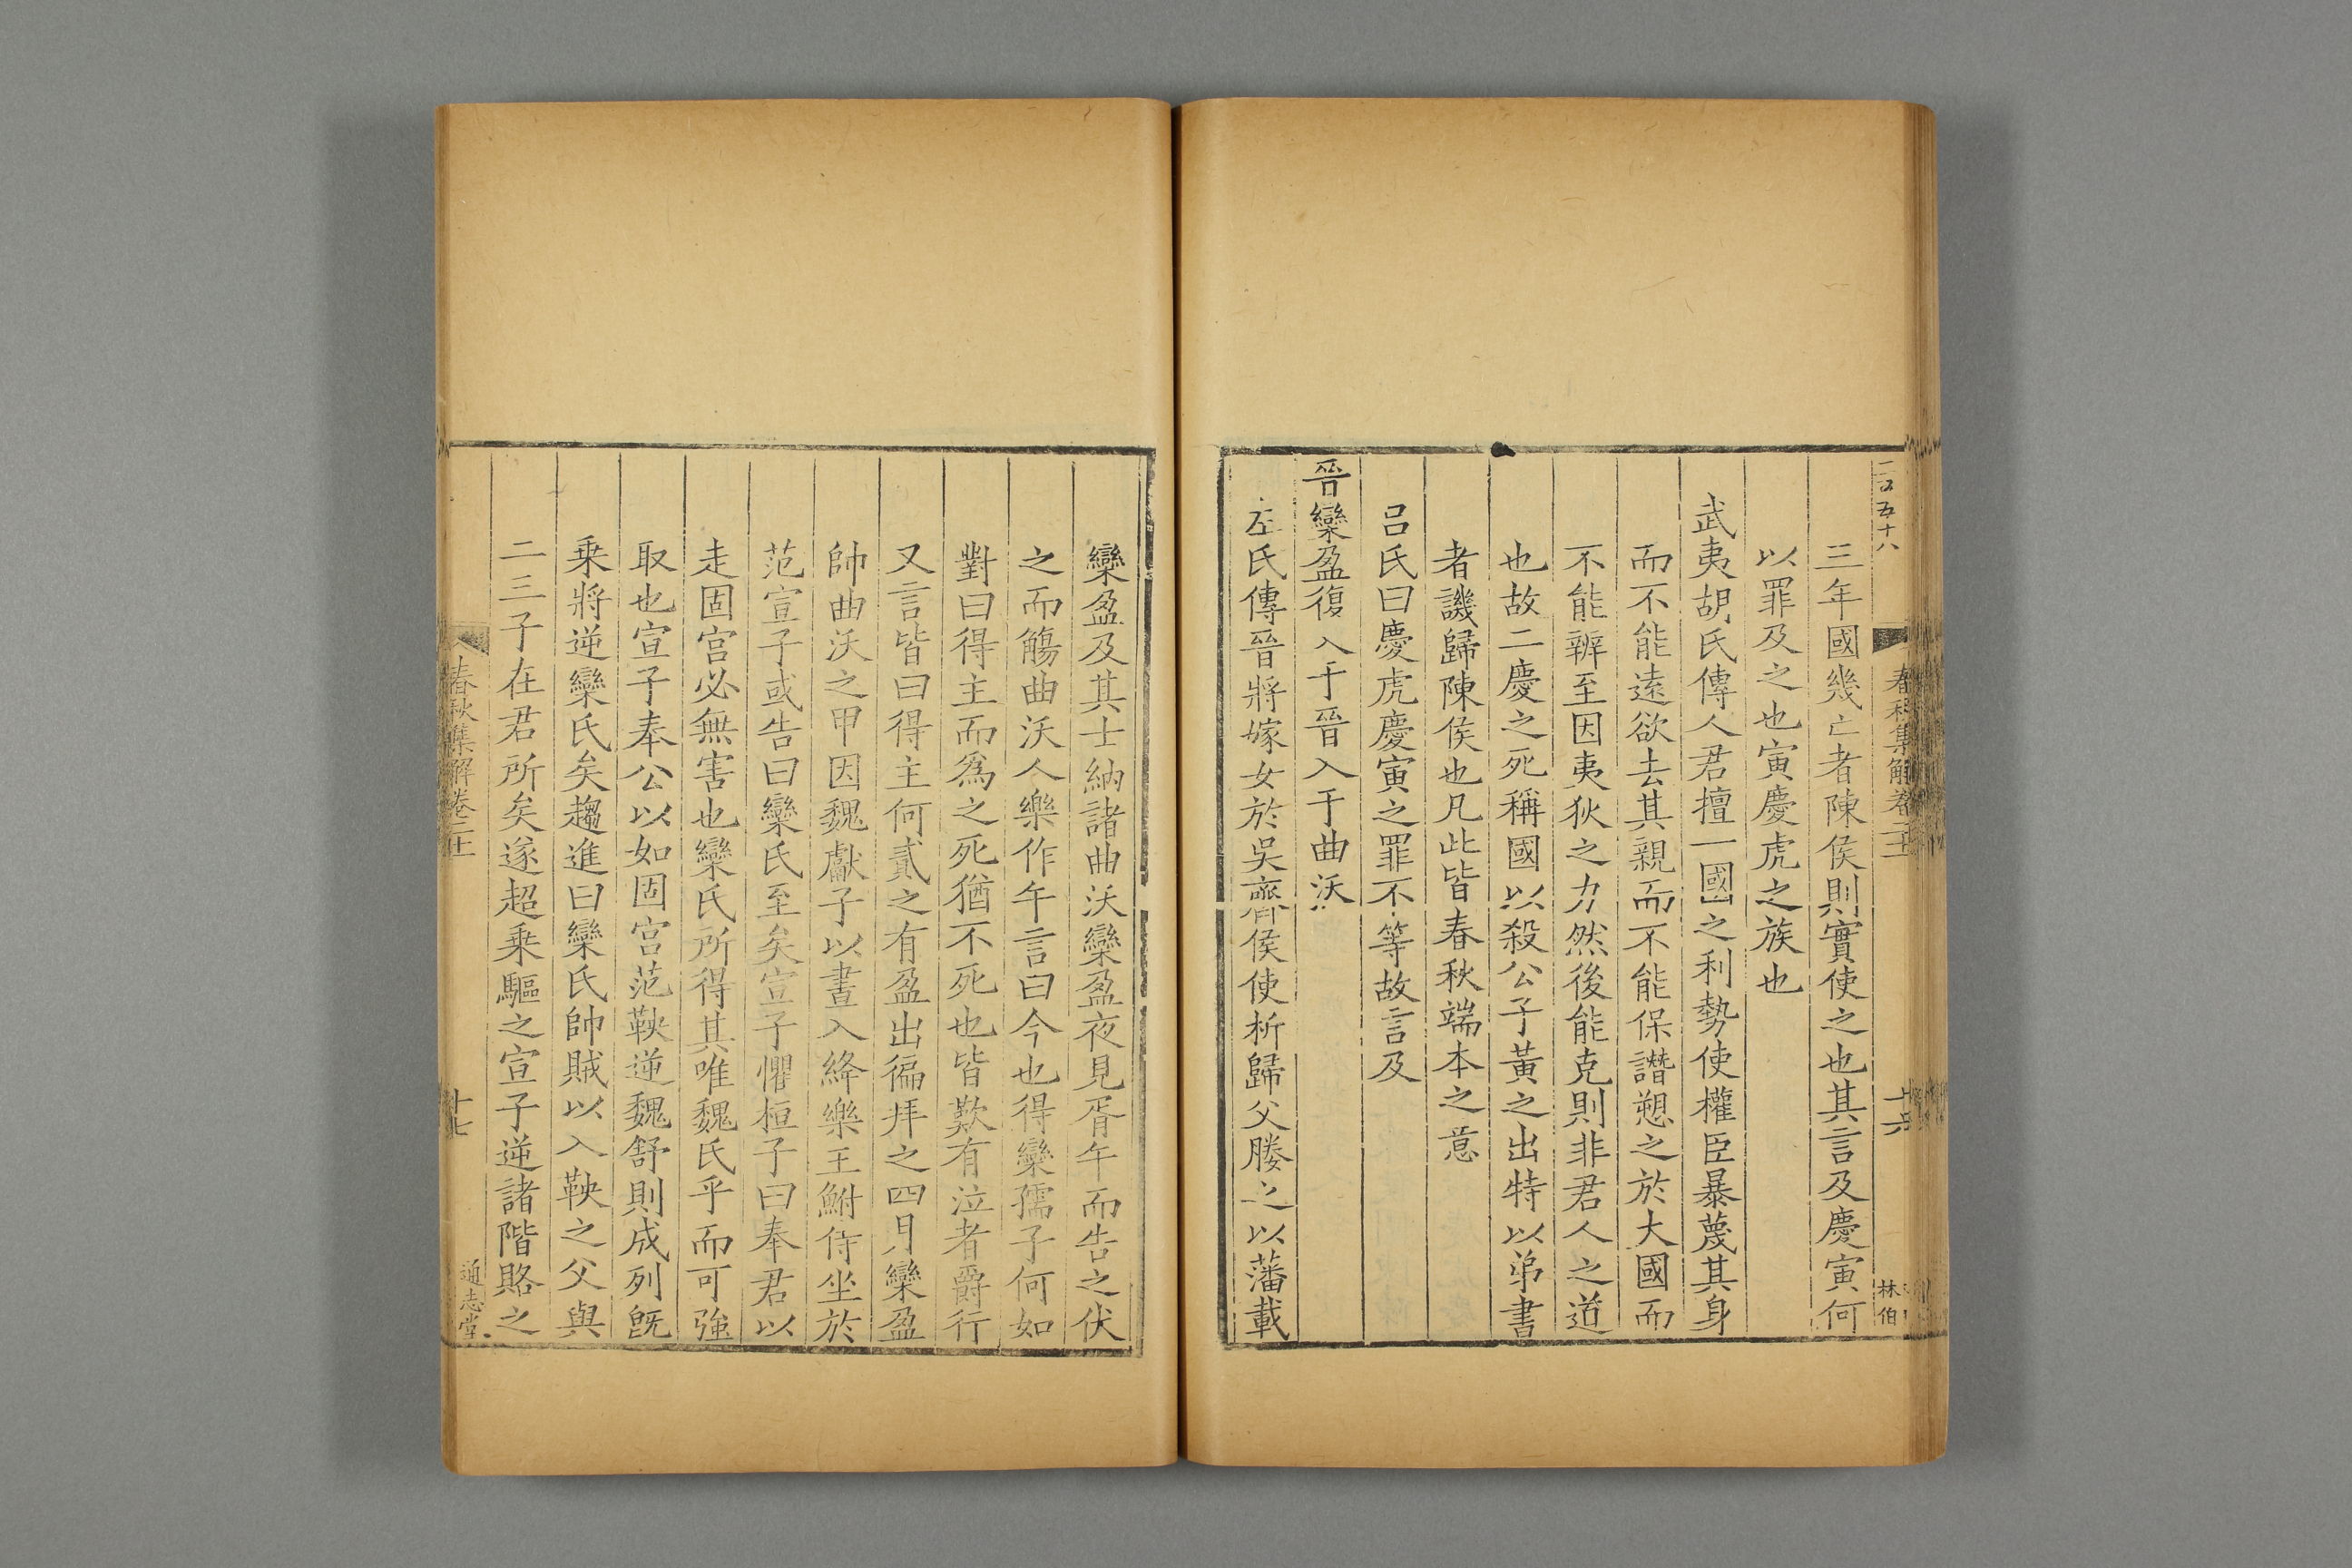 三年國幾亡者陳侯則實使之也其言及慶寅何
以罪及之也寅慶虎之族也
武夷胡氏傳人君擅一國之利勢使權臣暴蔑其身
而不能遠欲去其親而不能保譖愬之於大國而
不能辨至因夷狄之力然後能克則非君人之道
也故二慶之死稱國以殺公子黃之出特以弟書
者譏歸陳侯也凡此皆春秋端本之意
呂氏曰慶虎慶寅之罪不等故言及
晉欒盈復入于晉入于曲沃
左氏傳晉將嫁女於吳齊侯使析歸父媵之以藩載
欒盈及其士納諸曲沃欒盈夜見胥午而告之伏
之而觴曲沃人樂作午言曰今也得欒孺子何如
對曰得主而為之死猶不死也皆歎有泣者爵行
又言皆曰得主何貳之有盈出徧拜之四月欒盈
帥曲沃之甲因魏獻子以晝入絳樂王鮒侍坐於
范宣子或告曰欒氏至矣宣子懼桓子曰奉君以
走固宮必無害也欒氏所得其唯魏氏乎而可強
取也宣子奉公以如固宮范鞅逆魏舒則成列旣
乗將逆欒氏矣趨進曰欒氏帥賊以入鞅之父與
二三子在君所矣遂超乗驅之宣子逆諸階賂之
春秋集解卷二十
十七
通志堂